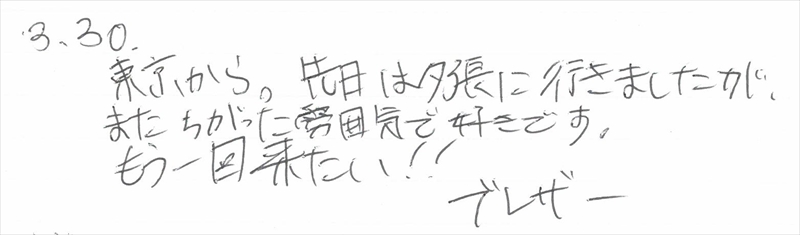 3.30.
東京から。先日は夕張に行きましたが、
またちがった雰囲気で好きです。
もう一回来たい!!
ブレザー